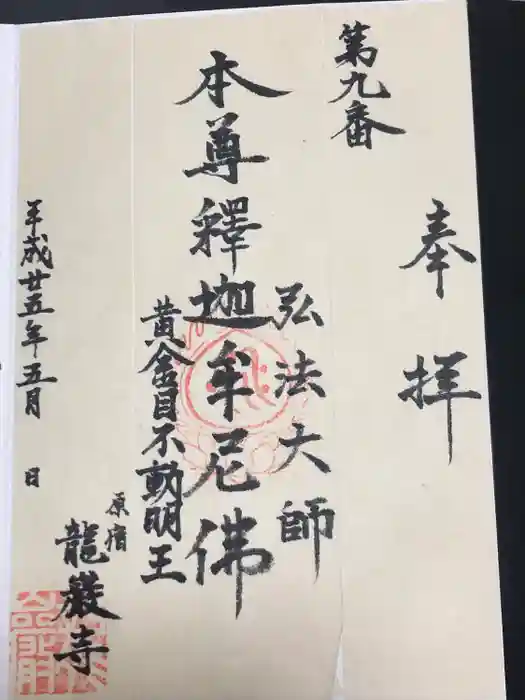 奉拝
第九番
弘法大師
本尊釋迦牟尼佛
黄金目不動明王
原宿
龍巖寺
平成廿五年五月　日